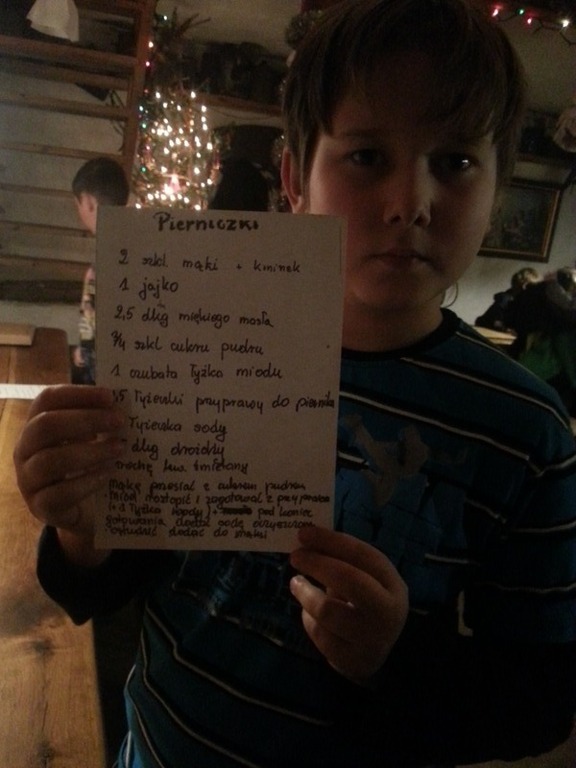 Pierniczki
2 szkl mąki + kminek
1 jajko
2,5 dkg miękiego masła
3/4 szkl cukru pudru
1 czubata łyżka miodu
,5 łyżeczki przyprawy do piernika
łyżeczka sody
dkg drożdży
trochę kw. śmietany
Mąkę przesiać z cukrem pudrem
miód roztopić i zagotować z przyprawami
(+ 1 łyżka wody) pod koniec
gotowania dodać sodę oczyszczon
ostudzić dodać do mąki